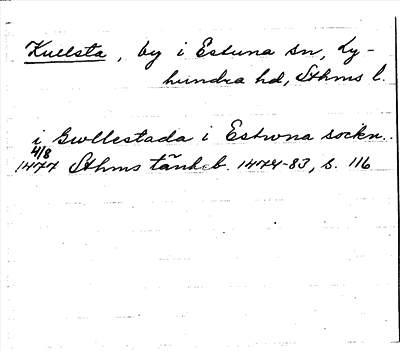 Kullsta, by i Estuna sn, Ly-
hundra hd, Sthms l.
i Gwllestada i Estwna sockn.
4/8
1477 Sthms tänkeb. 1474-83, s. 116